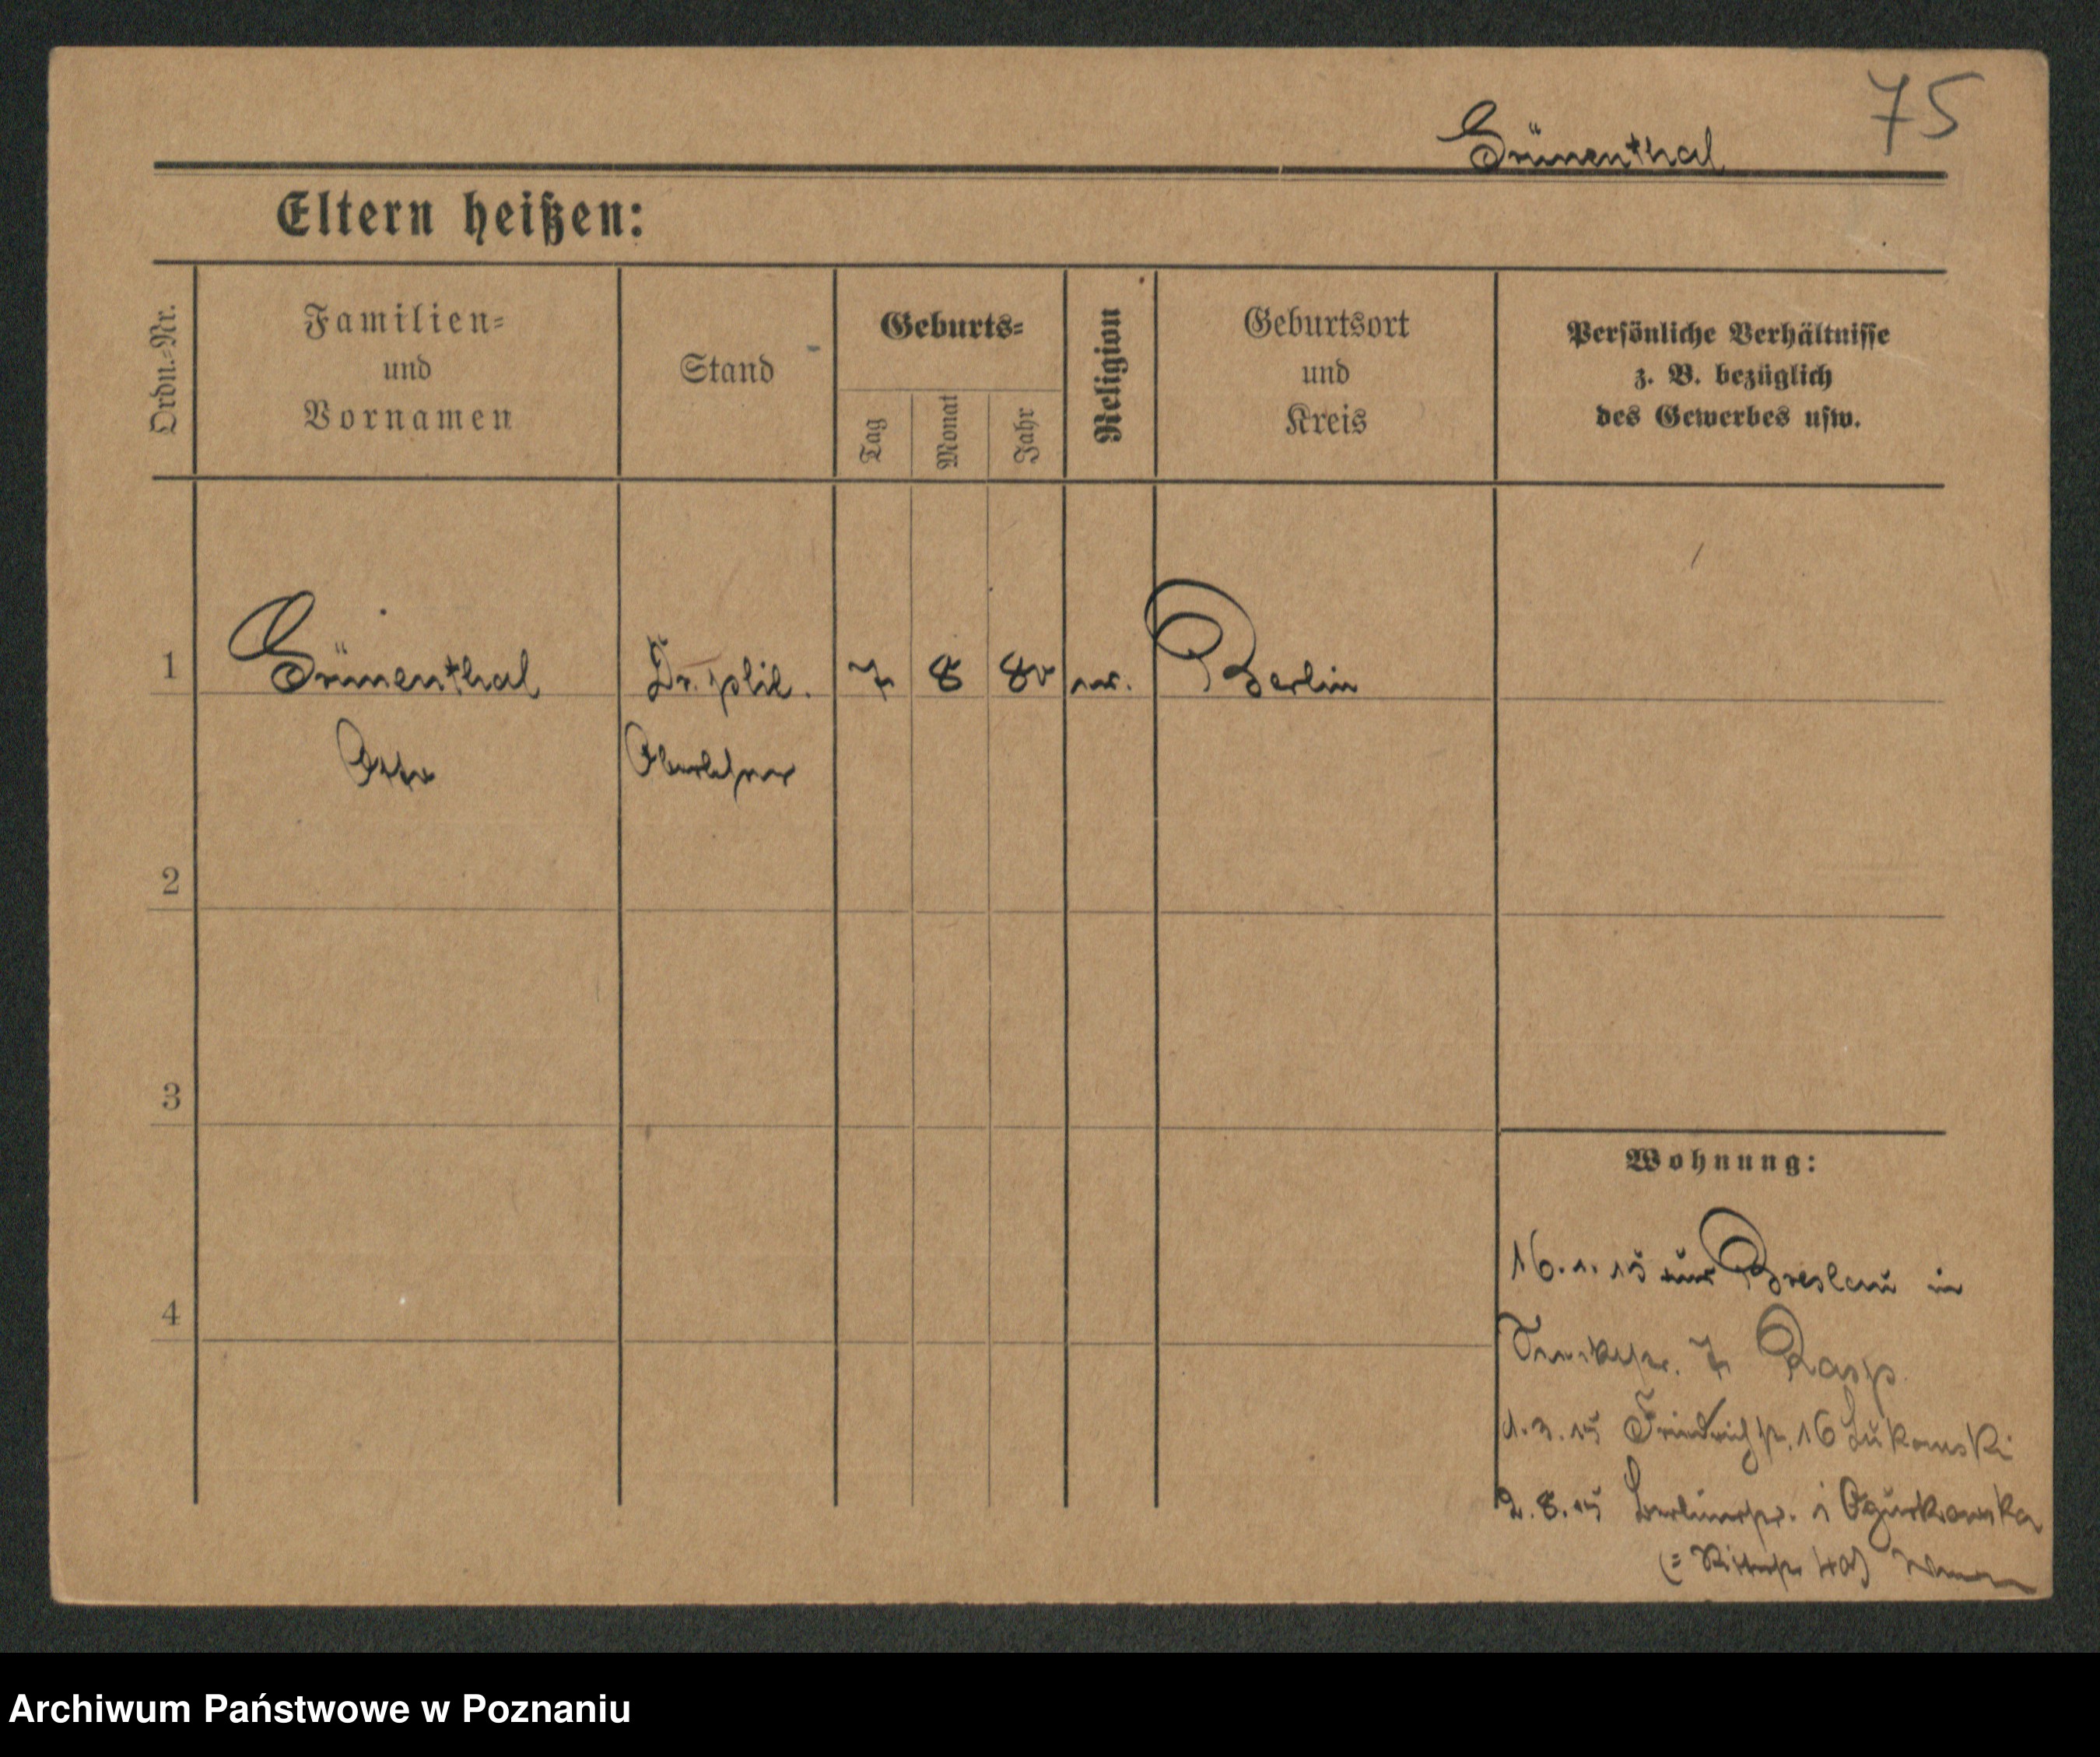 75
Grünenthal
Eltern heißen:
Ordn.-Nr.
Familien-
und
Vornamen
Stand
Geburts-
Tag
Monat
Jahr
Religion
Geburtsort
und
Kreis
Persönliche Verhältnisse
z. B. bezüglich
des Gewerbes usw.
1 Grünenthal Dr. phil. 7 8 80 Berlin
Otto Oberlehrer
2
3
4
Wohnung:
16.1.15 aus Breslau in
7 Rasp
1.3.15 Friedrichstr. 16 Lukowski
2.8.15 Berlinerstr. 1 Ogurkowska
(= Ritterstr. 40)
Archiwum Państwowe w Poznaniu